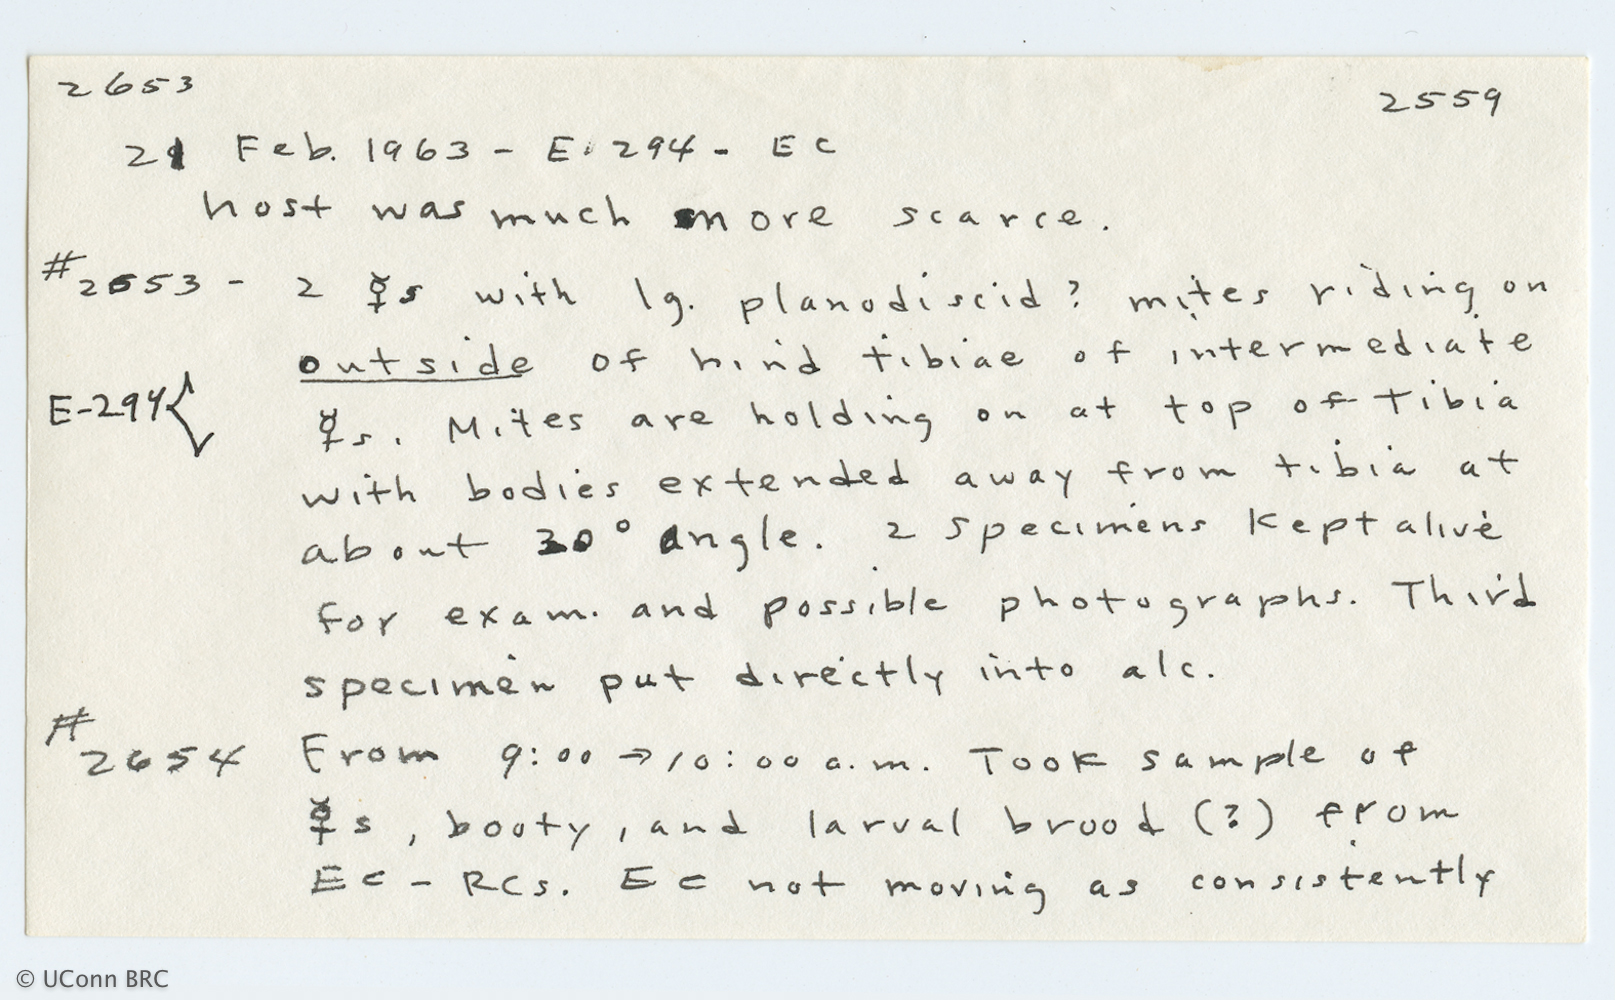 2653
2559
21 Feb. 1963 - E-294 - Ec
host was much more scarce.
#2653 - 2 ☿s with lg. planodiscid? mites riding on
outside of hind tibiae of intermediate
E-294{ ☿s. Mites are holding on at top of tibia
with bodies extended away from tibia at
about 30° angle. 2 specimens kept alive
for exam. and possible photographs. Third
specimen put directly into alc.
#2654 From 9:00 → 10:00 a.m. Took sample of
☿s, booty, and larval brood (?) from
Ec - RCs. Ec not moving as consistently
© UConn BRC